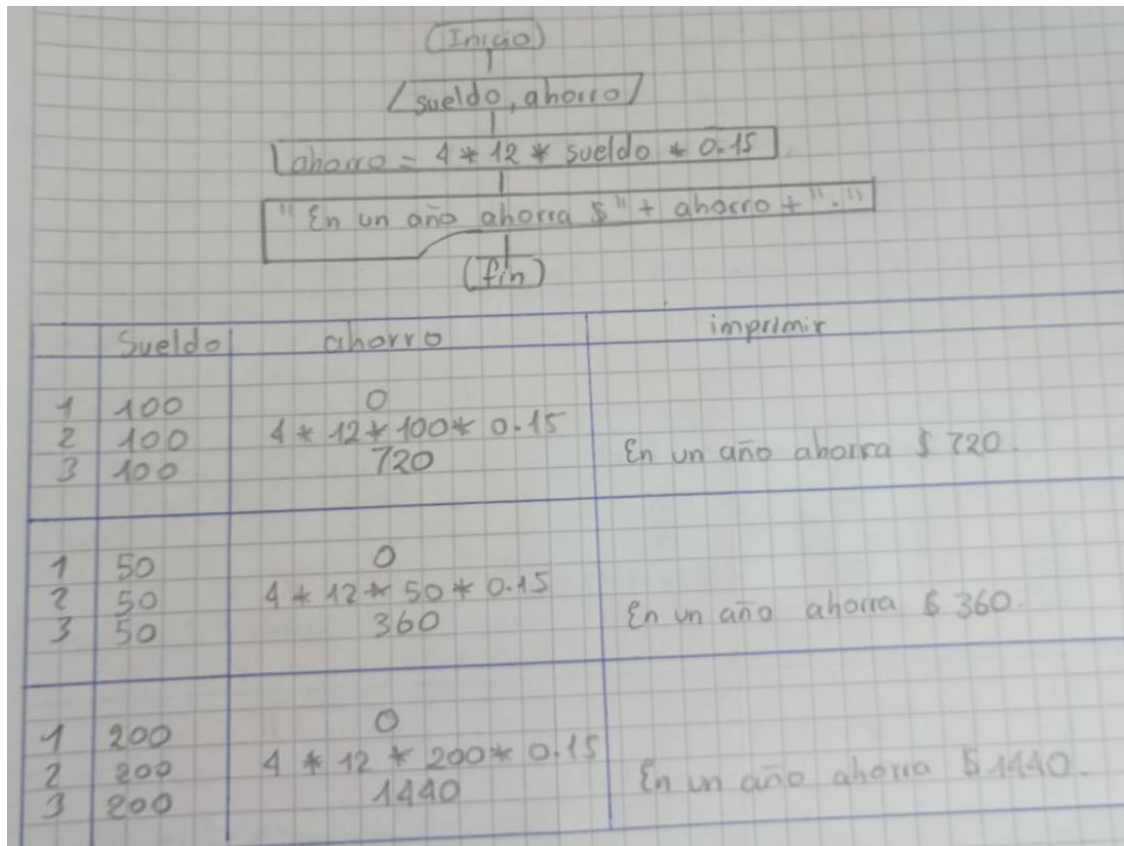 (Inicio)
sueldo, ahorro
ahorro = 4 * 12 * sueldo * 0.15
"En un año ahorra $" + ahorro + "."
(fin)
Sueldo ahorro imprimir
1 100 0
2 100 4 * 12 * 100 * 0.15
3 100 720 En un año ahorra $ 720.
1 50 0
2 50 4 * 12 * 50 * 0.15
3 50 360 En un año ahorra $ 360.
1 200 0
2 200 4 * 12 * 200 * 0.15
3 200 1440 En un año ahorra $ 1440.